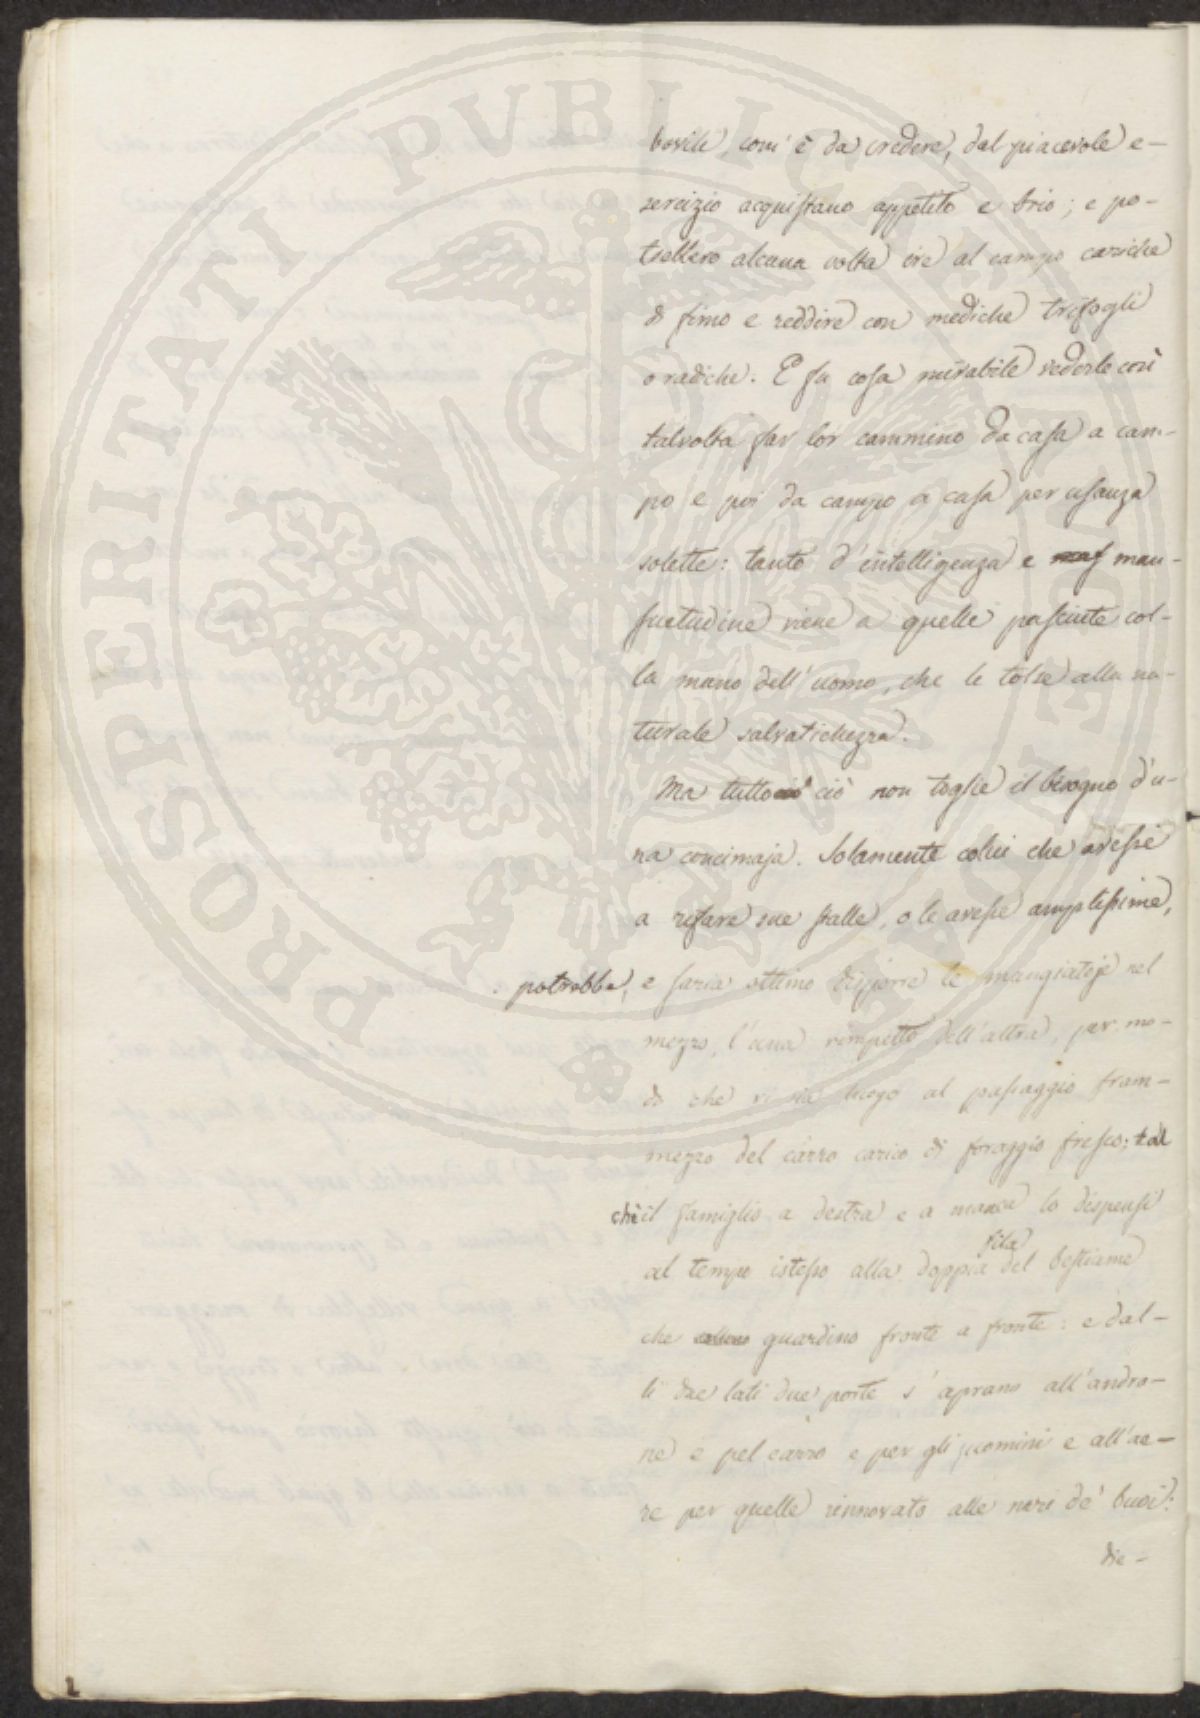 PROSPERITATI PUBLICAE AUGENDAE
bovili, com' è da credere, dal piacevole e-
sercizio acquistano appetito e brio; e po-
trellero alcuna volta ire al campo cariche
di fimo e reddire con mediche trifogli
o radiche. E fu cosa mirabile vederle così
talvolta far lor cammino da casa a cam-
po e poi da campo a casa per usanza
solette: tanto d'intelligenza e mas man-
suetudine viene a quelle pasciute col-
la mano dell'uomo, che le tolse alla na-
turale salvatichezza.
Ma tutto ciò ciò non toglie il bisogno d'u-
na concimaja. Solamente colui che avesse
a rifare sue stalle, o le avesse amplissime,
potrebbe, e saria ottimo disporre le mangiatoje nel
mezzo, l'una rimpetto dell'altra, per mo-
do che vi sia luogo al passaggio fram-
mezzo del carro carico di foraggio fresco; tal
chè il famiglio a destra e a manca lo dispensi
al tempo istesso alla doppia fila del bestiame
che guardino fronte a fronte: e dal-
li due lati due porte s'aprano all'andro-
ne e pel carro e per gli uomini e all'ae-
re per quelle rinnovato alle nari de' buoi:
die-
1